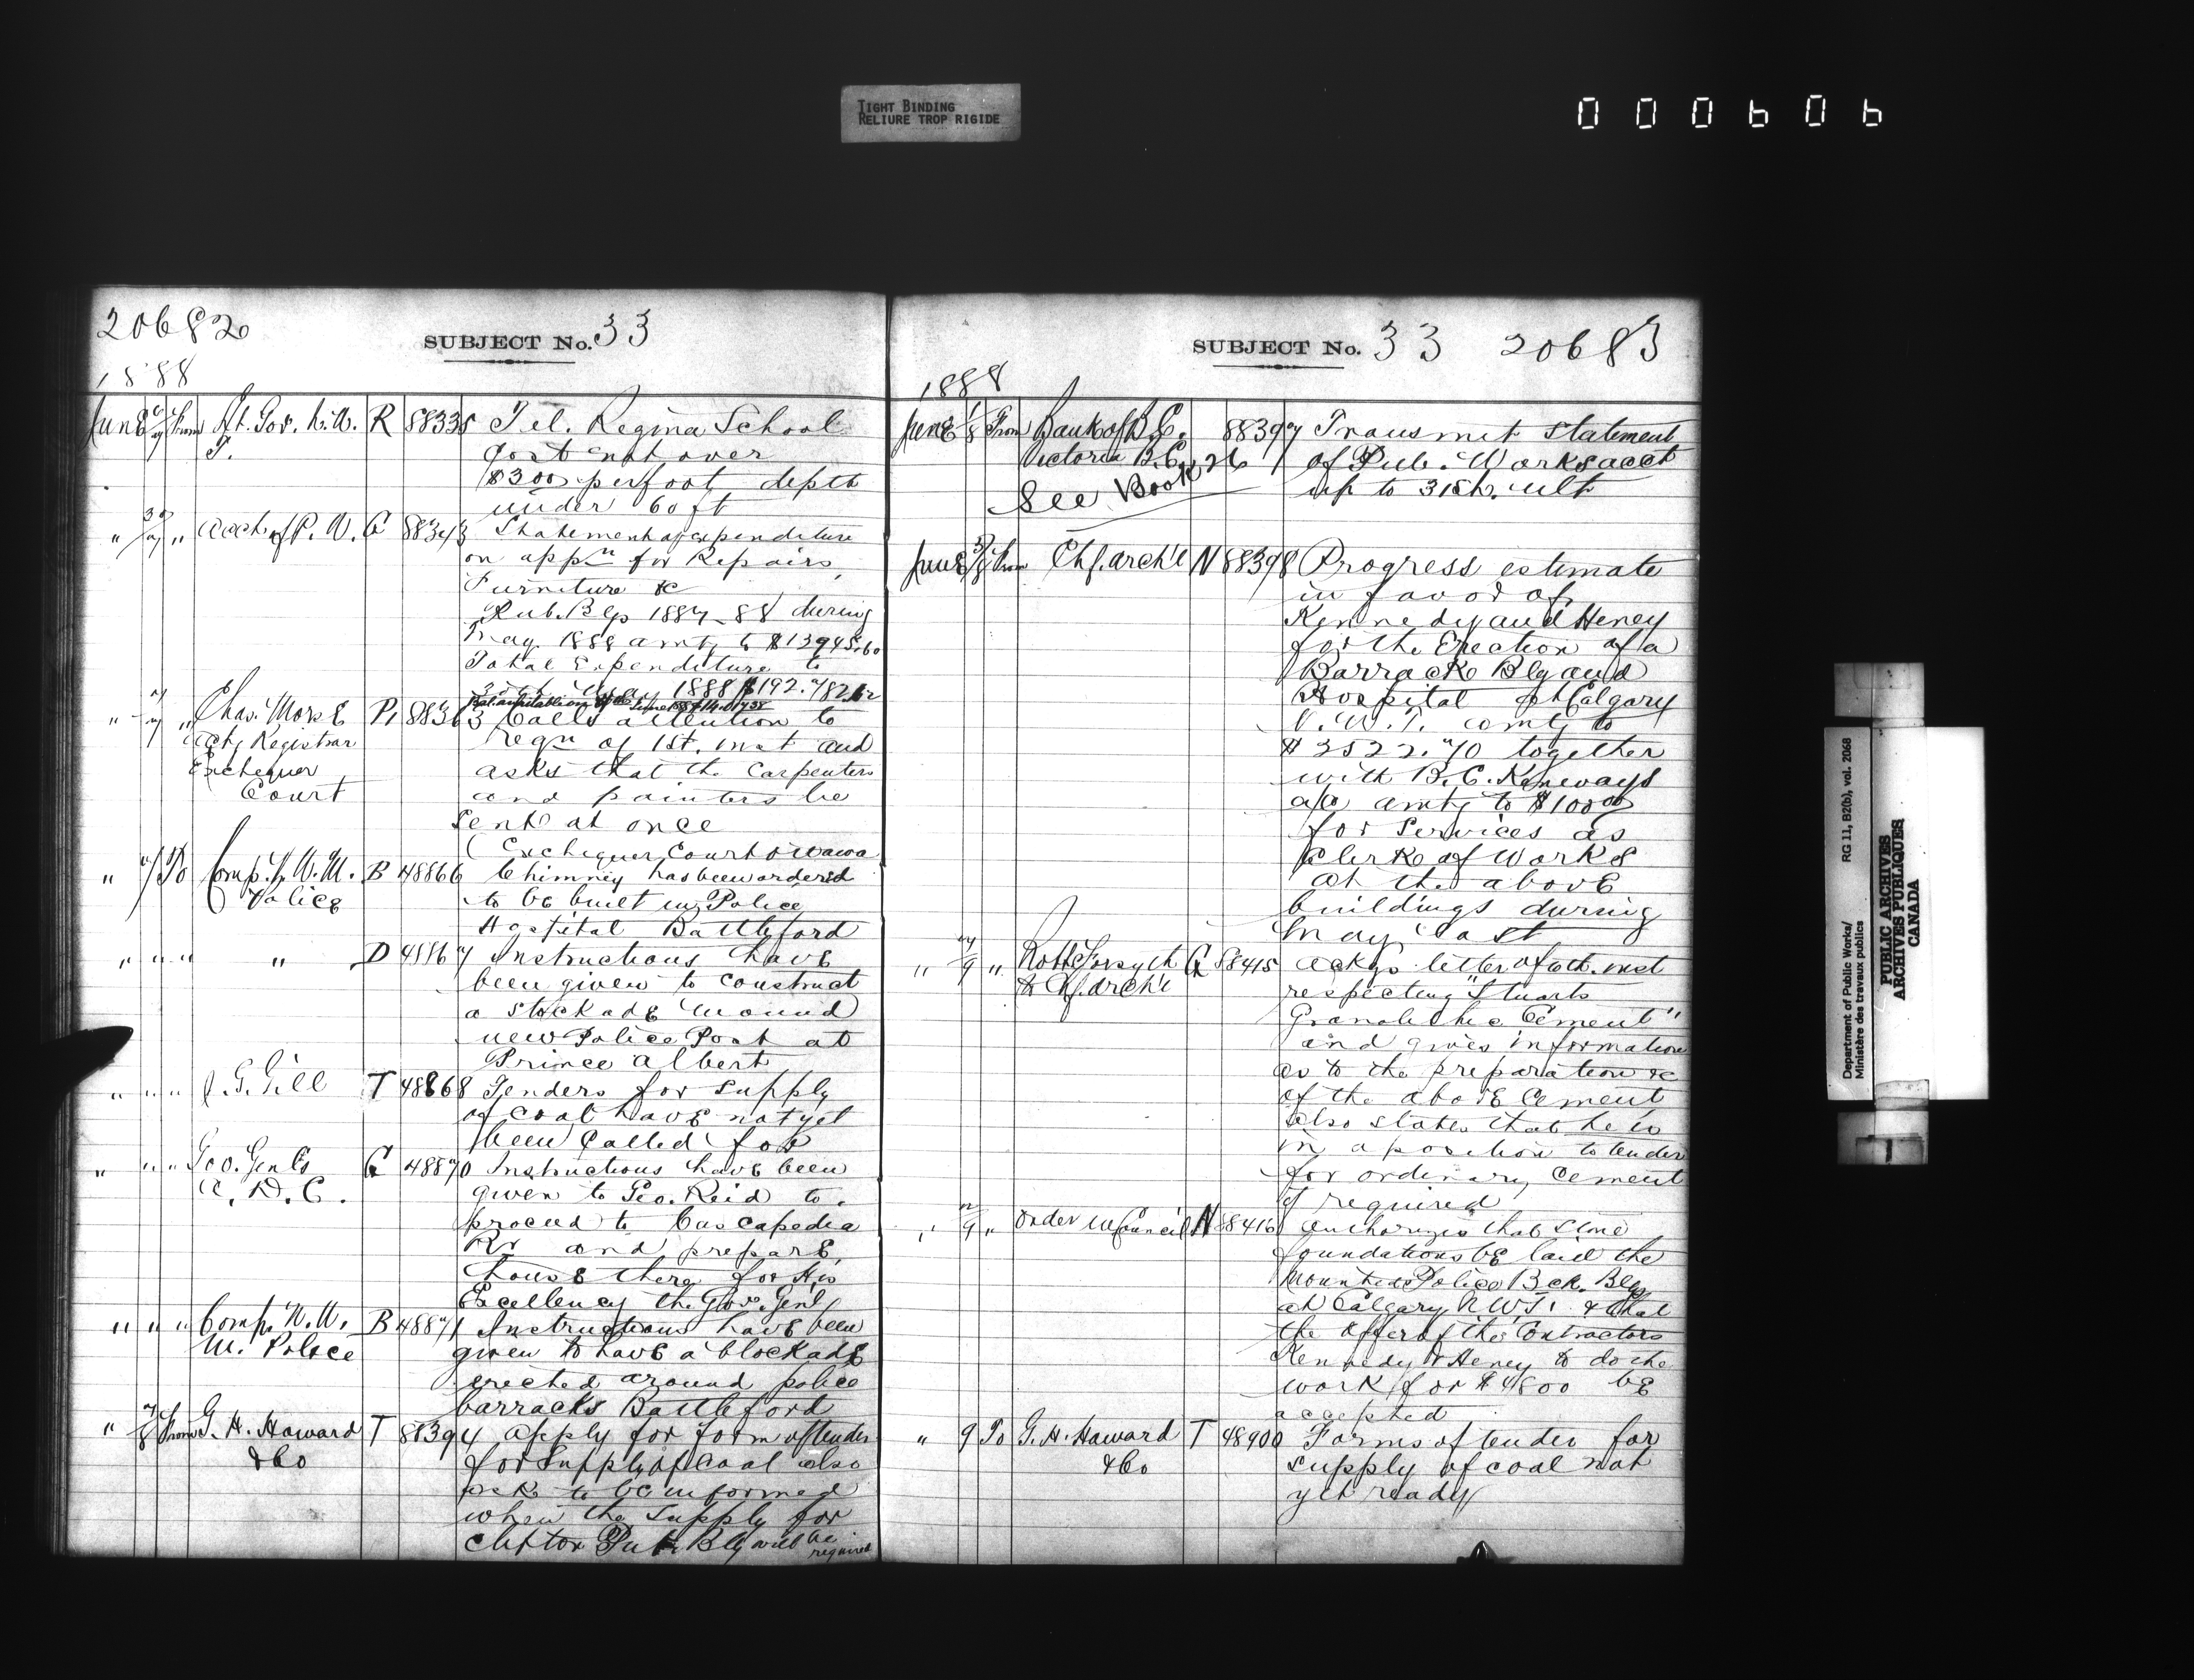 TIGHT BINDING
RELIURE TROP RIGIDE
000606
20682
SUBJECT No. 33
1888
June From Lt. Gov. N.W. R 88335 Tel. Regina School
T. Cost not over
$3.00 per foot depth
under 60 ft
" " Acct of P. W. G 88343 Statement of expenditure
on appn for Repairs,
Furniture &c
Pub. Blgs 1887-88 during
May 1888 amtg to $13945.60
Total Expenditure to
1888 $192.782.62
" " Chas. Morse P. 88363 Calls attention to
Actg Registrar reqn of 1st. inst and
Exchequer asks that the Carpenters
Court and painters be
sent at once
(Exchequer Court Ottawa
" To Comp. N. W. M. B 48866 Chimney has been ordered
Police to be built in Police
Hospital Battleford
" " " " D 48867 Instructions have
been given to construct
a stockade around
new Police Post at
Prince Albert
" " " J. G. Gill T 48868 Tenders for supply
of coal have not yet
been called for
" " " Gov. Genls G 48870 Instructions have been
A. D. C. given to Geo. Reid to
proceed to Cascapedia
Rr and prepare
house there for His
Excellency the Gov. Genl
" " " Comp. N. W. B 48871 Instructions have been
M. Police given to have a blockade
erected around police
barracks Battleford
" From G. H. Haward T 88394 Apply for form of tender
& Co for supply of coal also
ask to be informed
when the supply for
Clifton Pub. Blg will be
required
SUBJECT No. 33 20683
1888
June From Bank of B.C. 88397 Transmit statement
Victoria B.C. of Pub. Works acct
See Book 26 up to 31st. ult
June From Chf. Archt N 88398 Progress estimate
in favor of
Kennedy and Heney
for the Erection of a
Barrack Blg and
Hospital at Calgary
N. W. T. amtg to
$2522.70 together
with B. C. Keneways
a/c amtg to $100.00
for services as
Clerk of Works
at the above
buildings during
May last
" 9 " Robt Forsyth G 88415 Ackgs letter of 6th. inst
to Chf. Archt respecting "Stuarts
Granolithic Cement"
and gives information
as to the preparation &c
of the above Cement
also states that he is
in a position to tender
for ordinary cement
if required
" 9 " Order in Council N 88416 Authorizes that stone
foundations be laid the
Mounted Police Bck. Blg
at Calgary N.W.T. & that
the offer of the Contractors
Kennedy & Heney to do the
work for $4800 be
accepted
" 9 To G. H. Haward T 48900 Forms of tender for
& Co supply of coal not
yet ready
Department of Public Works/
Ministère des travaux publics
RG 11, B2(b), vol. 2068
PUBLIC ARCHIVES
ARCHIVES PUBLIQUES
CANADA